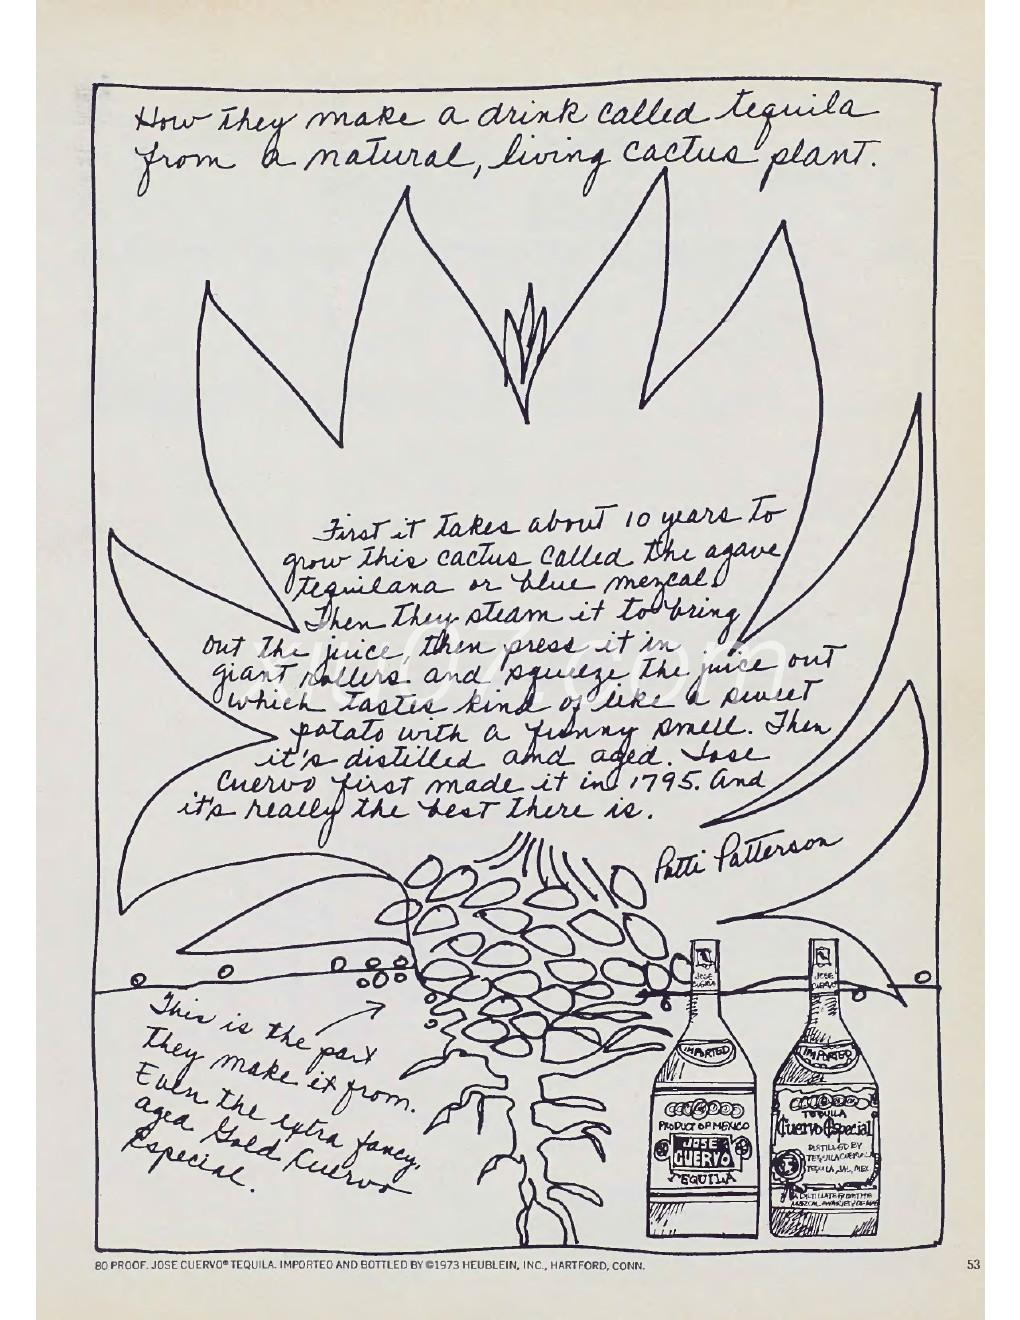 How they make a drink called tequila
from a natural, living cactus plant.
First it takes about 10 years to
grow this cactus called the agave
tequilana or blue mezcal.
Then they steam it to bring
out the juice, then press it in
giant rollers and squeeze the juice out
which tastes kind of like a sweet
potato with a funny smell. Then
it's distilled and aged. Jose
Cuervo first made it in 1795. And
it's really the best there is.
Patti Patterson
This is the part
they make it from.
Even the extra fancy,
aged Gold Cuervo
Especial.
JOSE
CUERVO
IMPORTED
PRODUCT OF MEXICO
JOSE
CUERVO
TEQUILA
JOSE
CUERVO
IMPORTED
TEQUILA
Cuervo Especial
DISTILLED BY
TEQUILA, JAL, MEX.
80 PROOF. JOSE CUERVO® TEQUILA. IMPORTED AND BOTTLED BY ©1973 HEUBLEIN, INC., HARTFORD, CONN.
53